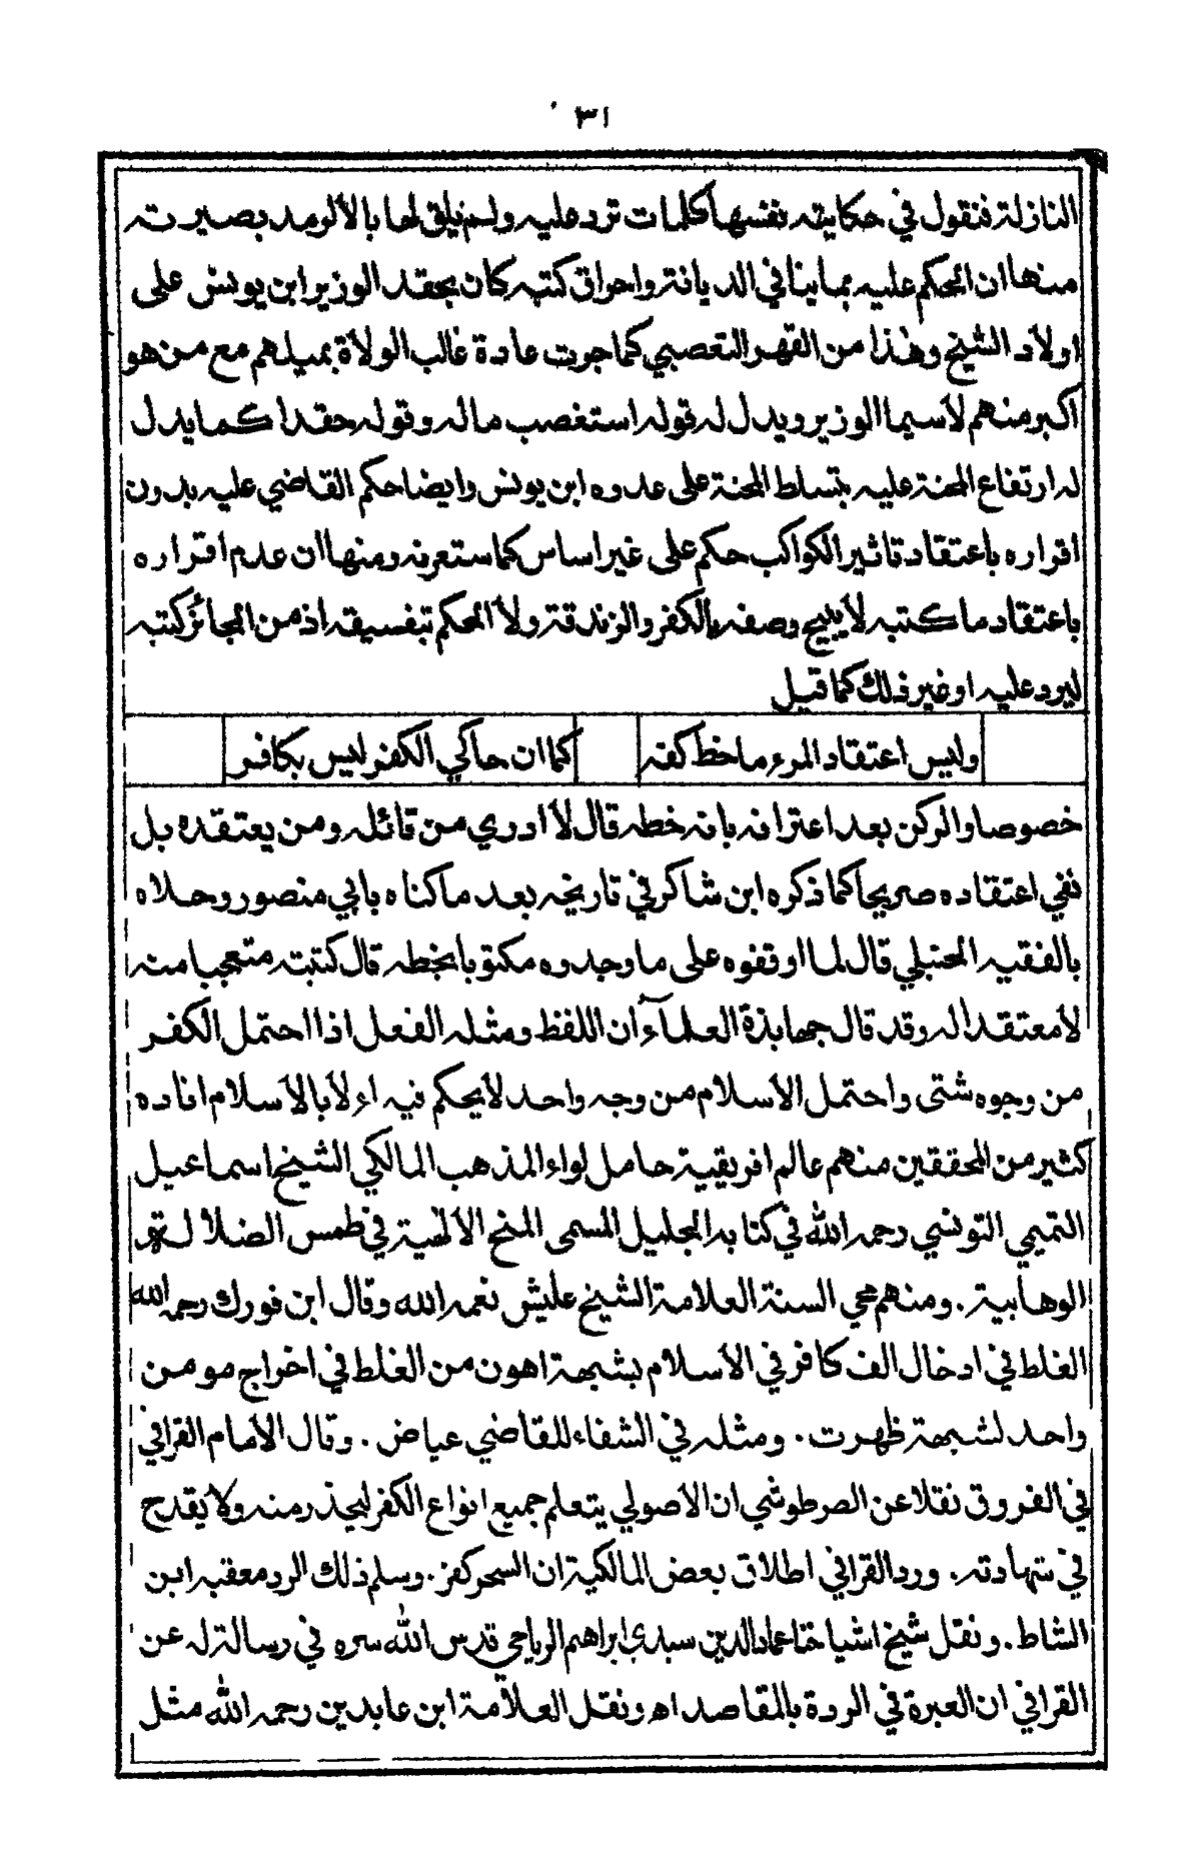 ٣١
النازلة فنقول في حكايته نفسها كلمات ترد عليه ولم يلق لها بالا لرمد بصيرته
منها ان الحكم عليه بما ينافي الديانة واحراق كتبه كان بحقد الوزير ابن يونس على
اولاد الشيخ وهذا من القهر التعصبي كما جرت عادة غالب الولاة بميلهم مع من هو
اكبر منهم لاسيما الوزير ويدل له قوله استغصب ماله وقوله حقدا كما يدل
له ارتفاع المحنة عليه بتساط المحنة على عدوه ابن يونس وايضا حكم القاضي عليه بدون
اقراره باعتقاد تاثير الكواكب حكم على غير اساس كما ستعرفه ومنها ان عدم اقراره
باعتقاد ما كتبه لا يبيح وصفه بالكفر والزندقة ولا الحكم بتفسيقه اذ من الجائز كتبه
ليرد عليه او غير ذلك كما قيل
وليس اعتقاد المرء ما خط كفه كما ان حاكي الكفر ليس بكافر
خصوصا والركن بعد اعترافه بانه خطه قال لا ادري من قائله ومن يعتقده بل
نفي اعتقاده صريحا كما ذكره ابن شاكر في تاريخه بعد ما كناه بابي منصور وحلاه
بالفقيه الحنبلي قال لما اوقفوه على ما وجدوه مكتوبا بخطه قال كتبته متعجبا منه
لا معتقدا له وقد قال جهابذة العلمآء ان اللفظ ومثله الفعل اذا احتمل الكفر
من وجوه شتى واحتمل الأسلام من وجه واحد لا يحكم فيه الا بالأسلام افاده
كثير من المحققين منهم عالم افريقية حامل لواء المذهب المالكي الشيخ اسماعيل
التميمي التونسي رحمه الله في كتابه الجليل المسمى المنح الألهية في طمس الضلالة
الوهابية. ومنهم محي السنة العلامة الشيخ عليش نعمه الله وقال ابن فورك رحمه الله
الغلط في ادخال الف كافر في الأسلام بشبهة اهون من الغلط في اخراج مومن
واحد لشبهة ظهرت. ومثله في الشفاء للقاضي عياض. وقال الأمام القرافي
في الفروق نقلا عن الطرطوشي ان الأصولي يتعلم جميع انواع الكفر ليحذر منه ولا يقدح
في شهادته. ورد القرافي اطلاق بعض المالكية ان السحر كفر. وسلم ذلك الرد معقبه ابن
الشاط. ونقل شيخ اشياخنا عماد الدين سيدي ابراهيم الرياحي قدس الله سره في رسالة له عن
القرافي ان العبرة في الردة بالمقاصد اه ونقل العلامة ابن عابدين رحمه الله مثل